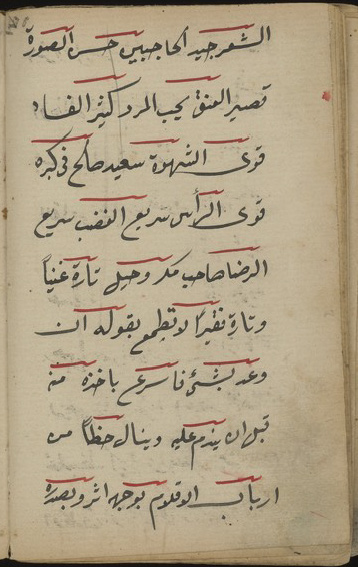 الشعر جيد الحاجبين حسن الصورة
قصير العنق يحب المرد كثير الفساد
قوى الشهوة سعيد صالح فى كبره
قوى الرأس سريع الغضب سريع
الرضا صاحب مكر وحيل تارة غنياً
وتارة فقيراً لا تطمع بقوله ان
وعد بشئ فاسرع باخذه منه
قبل ان يندم عليه وينال حظاً من
ارباب الاقلام بوجهه اثر وبصدره